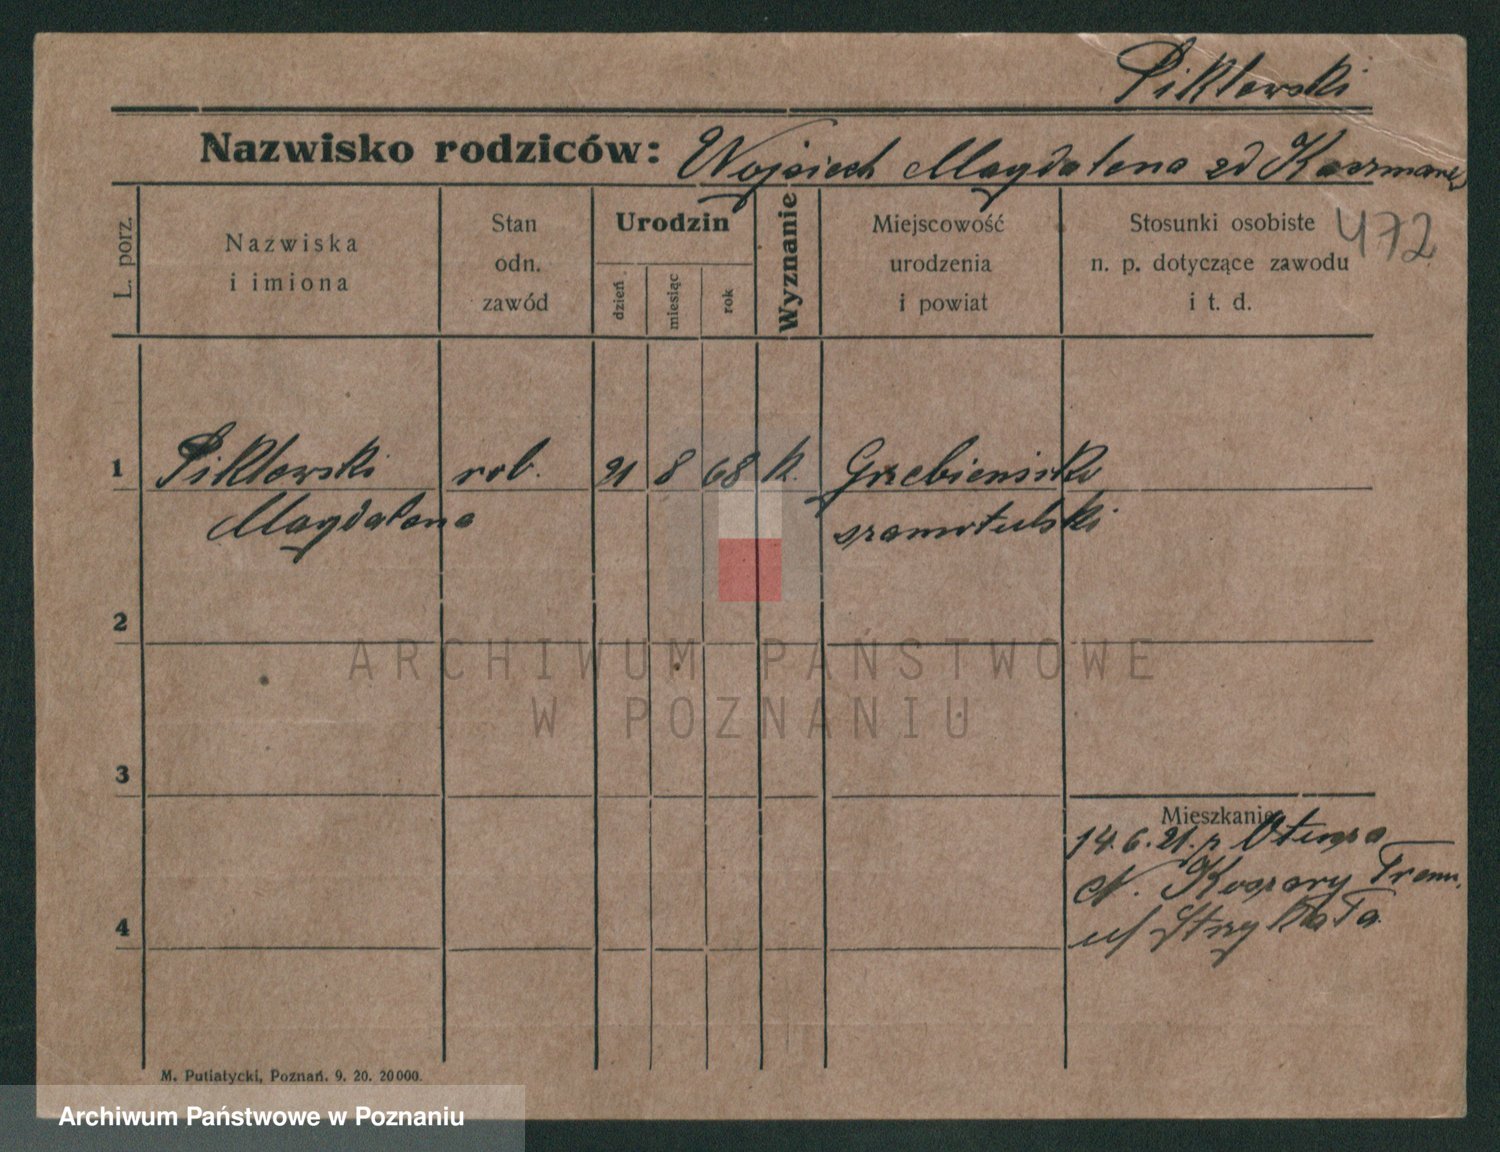 Piktowski
Nazwisko rodziców: Wojciech Magdalena zd Kaczmarek
L. porz.
Nazwiska
i imiona
Stan
odn.
zawód
Urodzin
dzień
miesiąc
rok
Wyznanie
Miejscowość
urodzenia
i powiat
Stosunki osobiste
n. p. dotyczące zawodu
i t. d.
472
1 Piktowski rob. 21 8 68 k. Grzebienisko
Magdalena szamotulski
2
3
4
Mieszkanie
14.6.21. p.
N. Koszary Tram.
ul
M. Putiatycki, Poznań. 9. 20. 20000.
ARCHIWUM PAŃSTWOWE
W POZNANIU
Archiwum Państwowe w Poznaniu